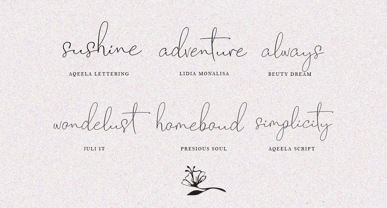 sushine adventure always
AQEELA LETTERING LIDIA MONALISA BEUTY DREAM
wondelust homeboud simplicity
JULI IT PRESIOUS SOUL AQEELA SCRIPT